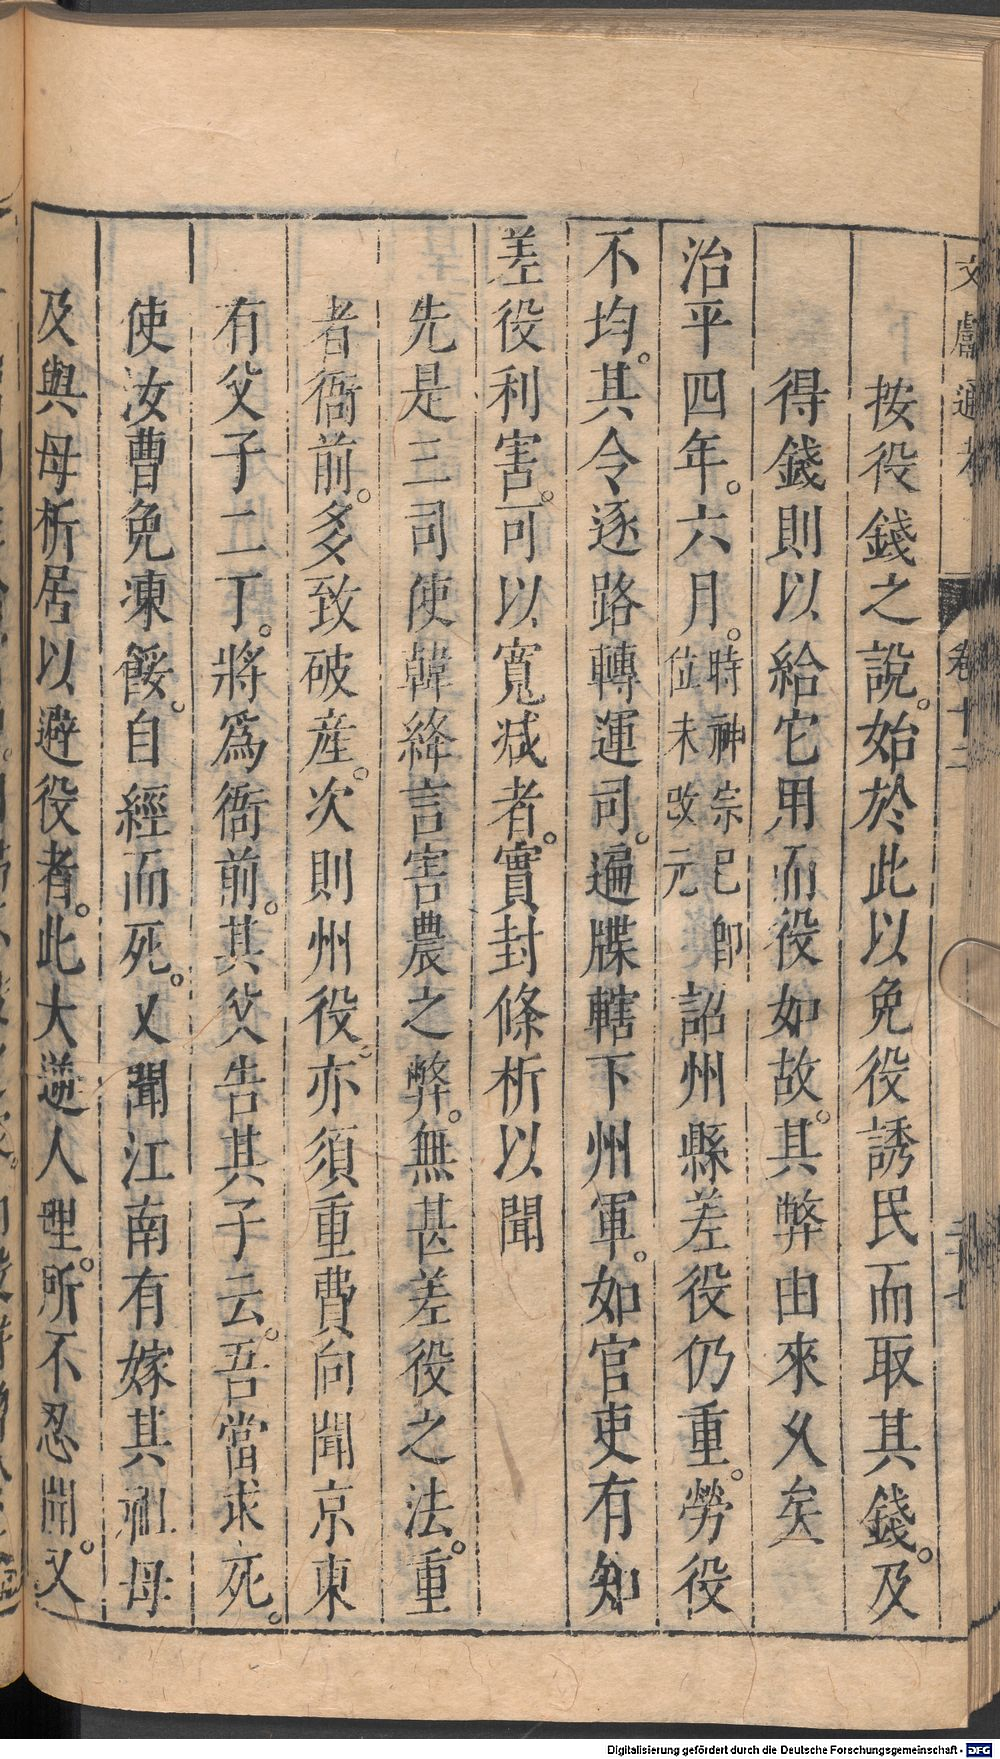 文獻通考 卷十二
按役錢之說。始於此以免役誘民而取其錢。及
得錢則以給它用而役如故。其弊由來久矣
治平四年。六月。時神宗已即位未改元詔州縣差役仍重。勞役
不均。其令逐路轉運司。遍牒轄下州軍。如官吏有知
差役利害。可以寬減者。實封條析以聞
先是三司使韓絳言害農之弊。無甚差役之法。重
者衙前。多致破産。次則州役。亦須重費向聞京東
有父子二丁。將爲衙前。其父告其子云。吾當求死。
使汝曹免凍餒。自經而死。又聞江南有嫁其祖母
及與母析居以避役者。此大逆人理。所不忍聞。又
Digitalisierung gefördert durch die Deutsche Forschungsgemeinschaft - DFG